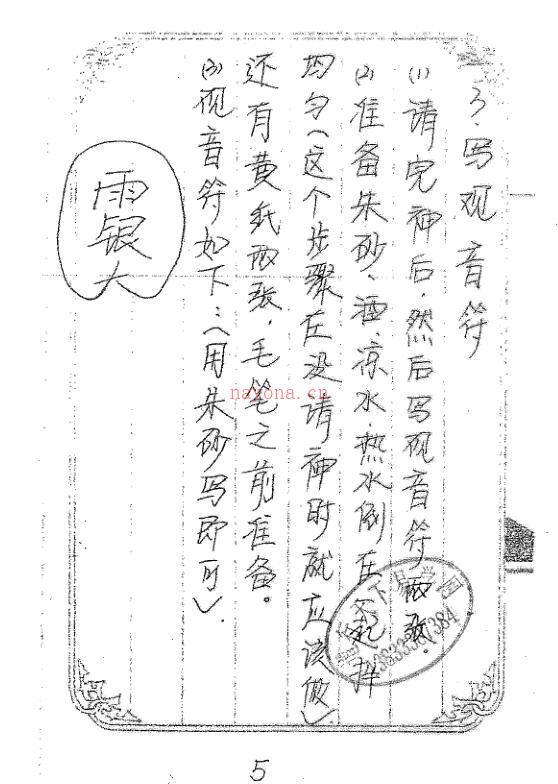 3.写观音符
(1)请完神后.然后写观音符两张.
(2)准备朱砂.酒.凉水.热水倒在一起拌
均匀(这个步骤在没请神时就应该做)
还有黄纸两张.毛笔之前准备。
(3)观音符如下:(用朱砂写即可).
雨银大
nayona.cn
5